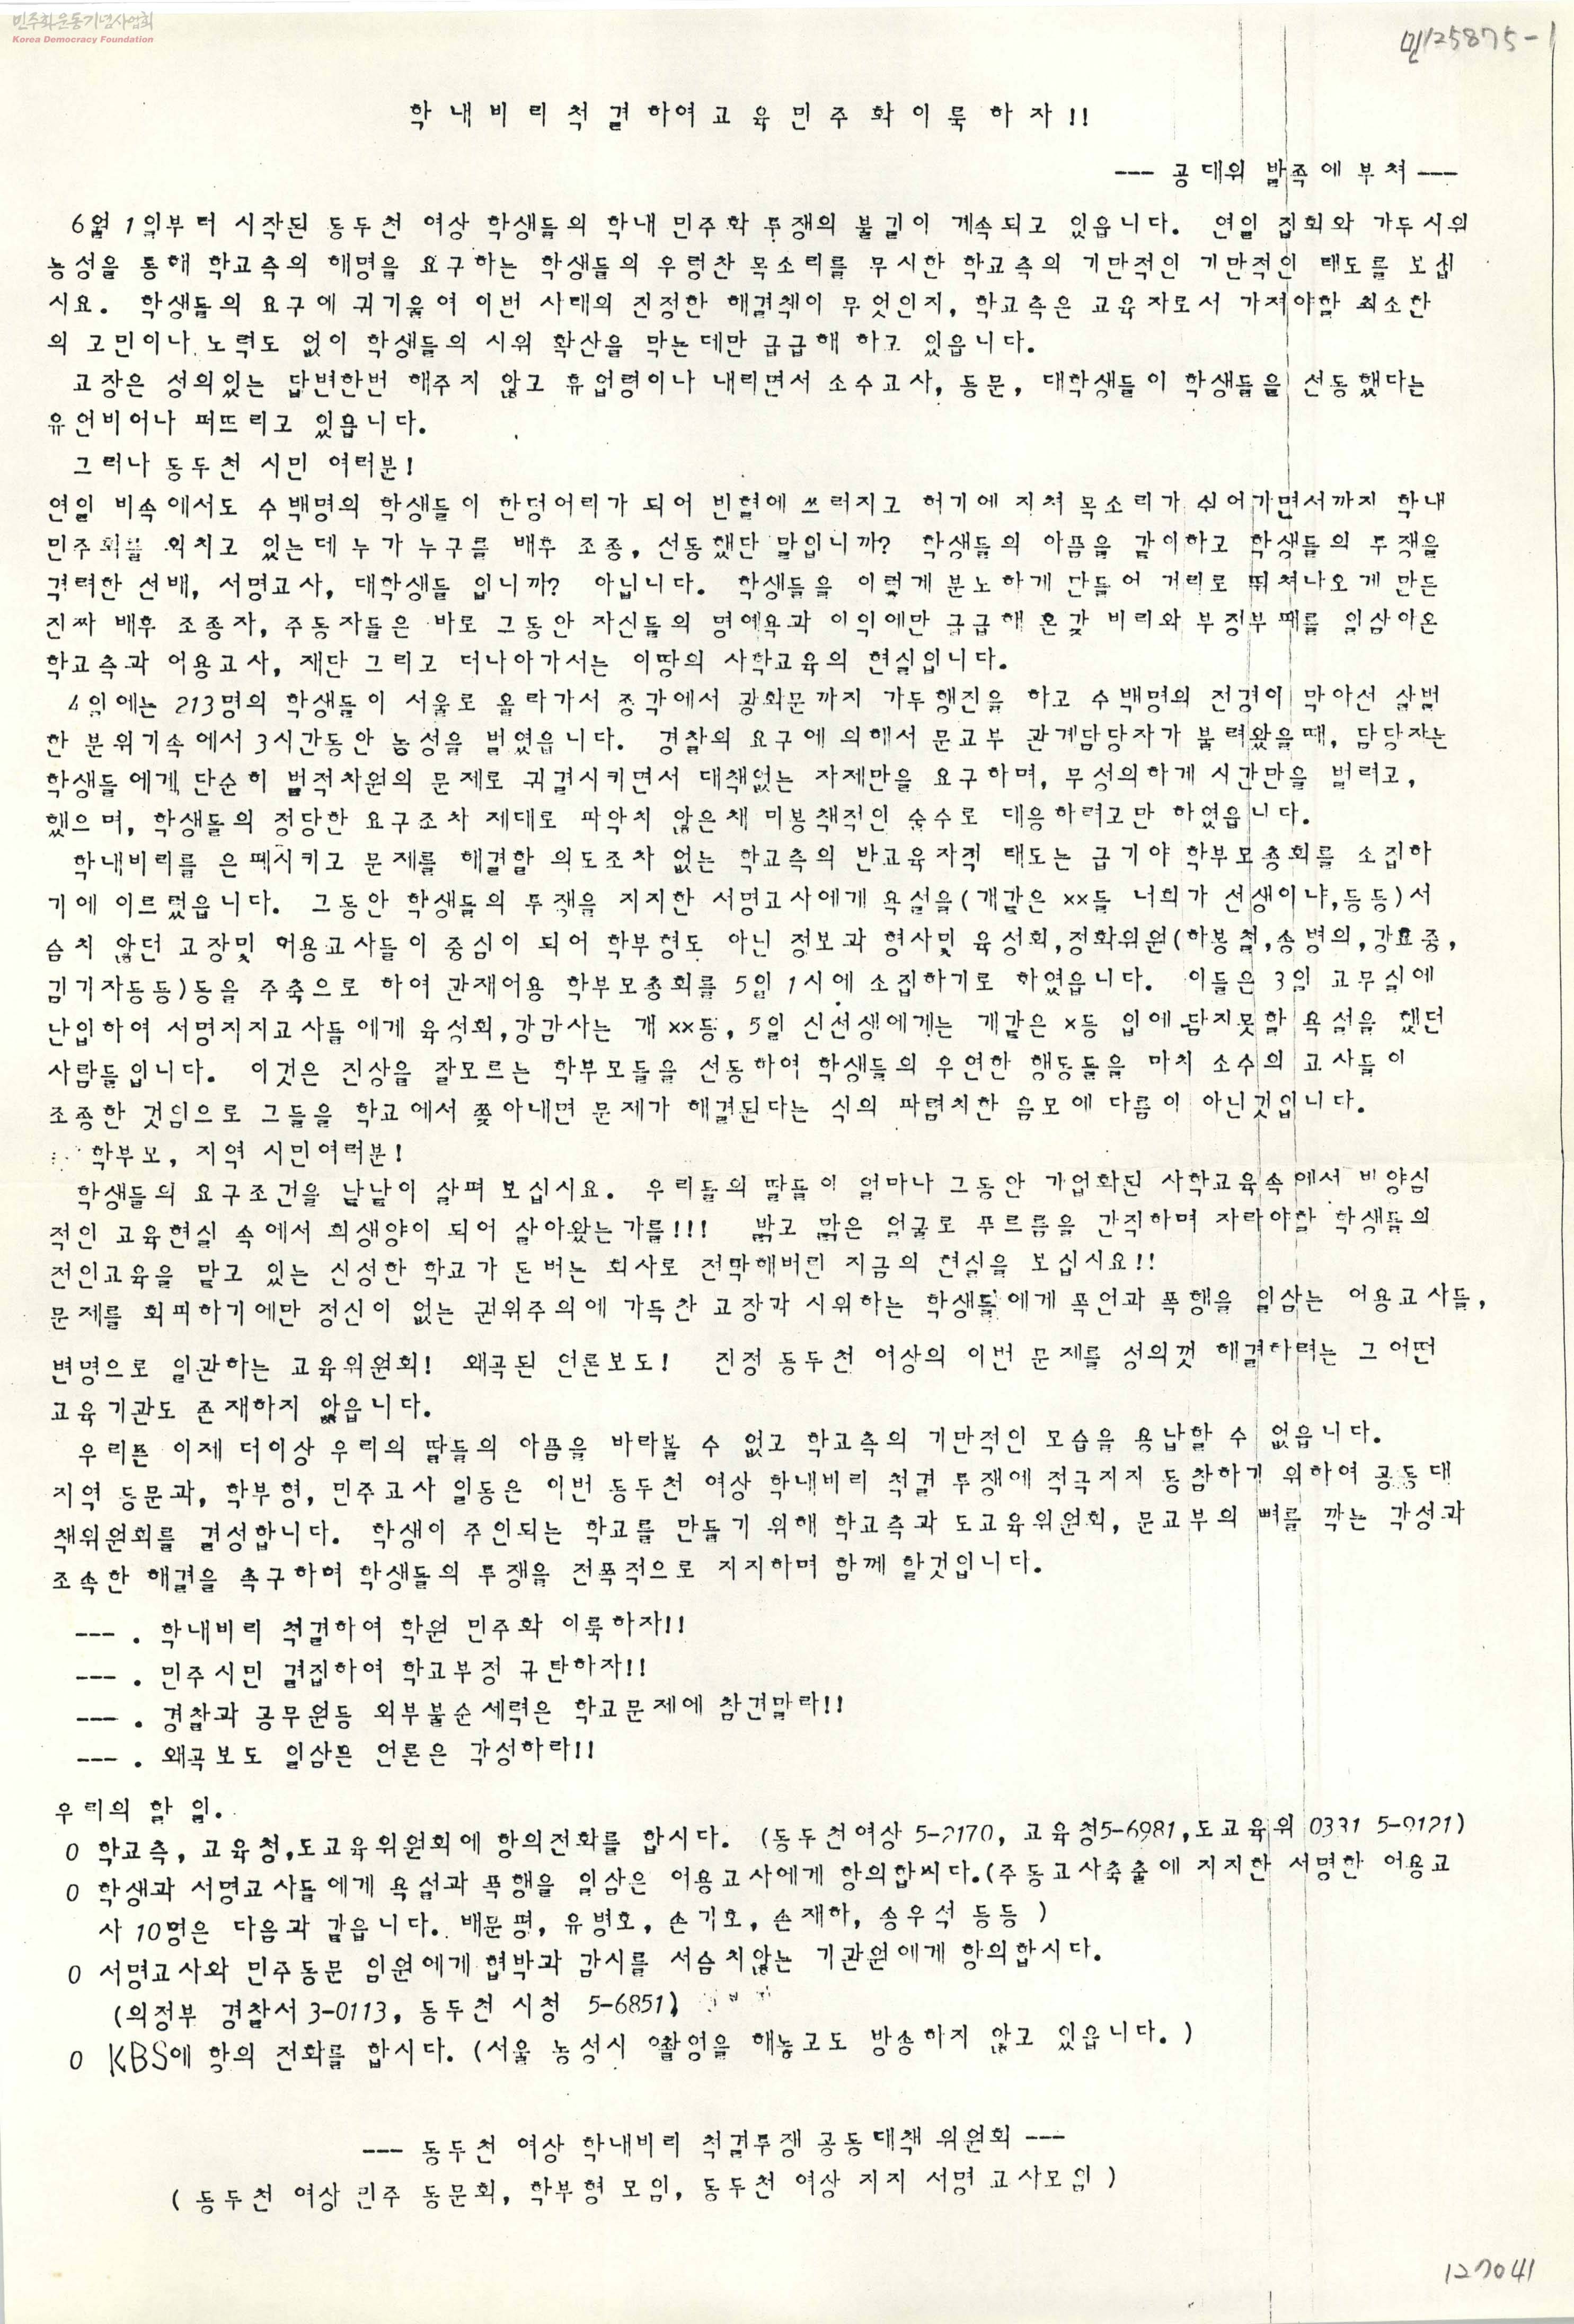 민주화운동기념사업회
Korea Democracy Foundation
민125875-1
학 내 비 리 척 결 하여 교 육 민 주 화 이 룩 하 자 !!
--- 공대위 발족에 부쳐 ---
6월 1일부터 시작된 동두천 여상 학생들의 학내 민주화 투쟁의 불길이 계속되고 있읍니다. 연일 집회와 가두시위
농성을 통해 학교측의 해명을 요구하는 학생들의 우렁찬 목소리를 무시한 학교측의 기만적인 기만적인 태도를 보십
시요. 학생들의 요구에 귀기울여 이번 사태의 진정한 해결책이 무엇인지, 학교측은 교육자로서 가져야할 최소한
의 고민이나 노력도 없이 학생들의 시위 확산을 막는데만 급급해 하고 있읍니다.
교장은 성의있는 답변한번 해주지 않고 휴업령이나 내리면서 소수교사, 동문, 대학생들이 학생들을 선동했다는
유언비어나 퍼뜨리고 있읍니다.
그러나 동두천 시민 여러분!
연일 비속에서도 수백명의 학생들이 한덩어리가 되어 빈혈에 쓰러지고 허기에 지쳐 목소리가 쉬어가면서까지 학내
민주화를 외치고 있는데 누가 누구를 배후 조종, 선동했단 말입니까? 학생들의 아픔을 같이하고 학생들의 투쟁을
격려한 선배, 서명교사, 대학생들 입니까? 아닙니다. 학생들을 이렇게 분노하게 만들어 거리로 뛰쳐나오게 만든
진짜 배후 조종자, 주동자들은 바로 그동안 자신들의 명예욕과 이익에만 급급해 온갖 비리와 부정부패를 일삼아온
학교측과 어용교사, 재단 그리고 더나아가서는 이땅의 사학교육의 현실입니다.
4일에는 213명의 학생들이 서울로 올라가서 종각에서 광화문까지 가두행진을 하고 수백명의 전경이 막아선 살벌
한 분위기속에서 3시간동안 농성을 벌였읍니다. 경찰의 요구에 의해서 문교부 관계담당자가 불려왔을때, 담당자는
학생들에게 단순히 법적차원의 문제로 귀결시키면서 대책없는 자제만을 요구하며, 무성의하게 시간만을 벌려고,
했으며, 학생들의 정당한 요구조차 제대로 파악치 않은채 미봉책적인 술수로 대응하려고만 하였읍니다.
학내비리를 은폐시키고 문제를 해결할 의도조차 없는 학교측의 반교육자적 태도는 급기야 학부모총회를 소집하
기에 이르렀읍니다. 그동안 학생들의 투쟁을 지지한 서명교사에게 욕설을(개같은 xx들 너희가 선생이냐,등등)서
슴치 않던 교장및 어용교사들이 중심이 되어 학부형도 아닌 정보과 형사및 육성회,정화위원(하봉철,송병의,강효중,
김기자등등)등을 주축으로 하여 관제어용 학부모총회를 5일 1시에 소집하기로 하였읍니다. 이들은 3일 교무실에
난입하여 서명지지교사들에게 육성회,강감사는 개xx등, 5일 신선생에게는 개같은 x등 입에 담지못할 욕설을 했던
사람들입니다. 이것은 진상을 잘모르는 학부모들을 선동하여 학생들의 우연한 행동들을 마치 소수의 교사들이
조종한 것임으로 그들을 학교에서 쫓아내면 문제가 해결된다는 식의 파렴치한 음모에 다름이 아닌것입니다.
학부모, 지역 시민여러분!
학생들의 요구조건을 낱낱이 살펴 보십시요. 우리들의 딸들이 얼마나 그동안 기업화된 사학교육속에서 비양심
적인 교육현실 속에서 희생양이 되어 살아왔는가를!!! 밝고 맑은 얼굴로 푸르름을 간직하며 자라야할 학생들의
전인교육을 맡고 있는 신성한 학교가 돈버는 회사로 전락해버린 지금의 현실을 보십시요!!
문제를 회피하기에만 정신이 없는 권위주의에 가득찬 교장과 시위하는 학생들에게 폭언과 폭행을 일삼는 어용교사들,
변명으로 일관하는 교육위원회! 왜곡된 언론보도! 진정 동두천 여상의 이번 문제를 성의껏 해결하려는 그 어떤
교육기관도 존재하지 않읍니다.
우리는 이제 더이상 우리의 딸들의 아픔을 바라볼 수 없고 학교측의 기만적인 모습을 용납할 수 없읍니다.
지역 동문과, 학부형, 민주교사 일동은 이번 동두천 여상 학내비리 척결 투쟁에 적극지지 동참하기 위하여 공동대
책위원회를 결성합니다. 학생이 주인되는 학교를 만들기 위해 학교측과 도교육위원회, 문교부의 뼈를 깎는 각성과
조속한 해결을 촉구하며 학생들의 투쟁을 전폭적으로 지지하며 함께 할것입니다.
--- . 학내비리 척결하여 학원 민주화 이룩하자!!
--- . 민주시민 결집하여 학교부정 규탄하자!!
--- . 경찰과 공무원등 외부불순세력은 학교문제에 참견말라!!
--- . 왜곡보도 일삼는 언론은 각성하라!!
우리의 할 일.
0 학교측, 교육청,도교육위원회에 항의전화를 합시다. (동두천여상 5-2170, 교육청5-6981,도교육위 0331 5-0121)
0 학생과 서명교사들에게 욕설과 폭행을 일삼은 어용교사에게 항의합씨다.(주동교사축출에 지지한 서명한 어용교
사 10명은 다음과 같읍니다. 배문평, 유병호, 손기호, 손재하, 송우석 등등 )
0 서명교사와 민주동문 임원에게 협박과 감시를 서슴치않는 기관원에게 항의합시다.
(의정부 경찰서 3-0113, 동두천 시청 5-6851)
0 KBS에 항의 전화를 합시다. (서울 농성시 촬영을 해놓고도 방송하지 않고 있읍니다. )
--- 동두천 여상 학내비리 척결투쟁 공동대책 위원회 ---
( 동두천 여상 민주 동문회, 학부형 모임, 동두천 여상 지지 서명 교사모임 )
127041